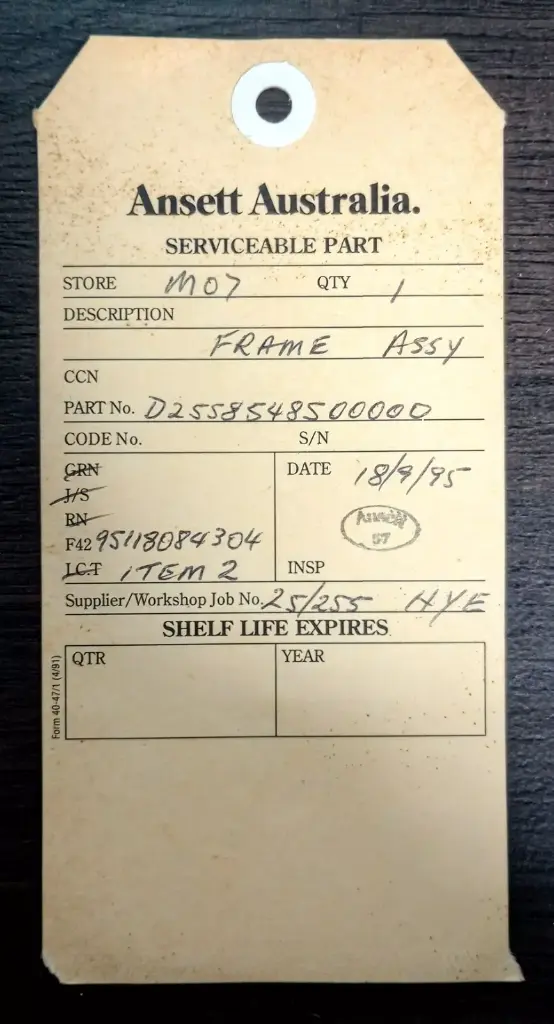 Ansett Australia.
SERVICEABLE PART
STORE M07 QTY 1
DESCRIPTION
FRAME ASSY
CCN
PART No. D2558548500000
CODE No. S/N
GRN DATE 18/9/95
J/S
RN
F42 95118084304
LCT ITEM 2 INSP
Ansett
57
Supplier/Workshop Job No. 25/255 HYE
SHELF LIFE EXPIRES
QTR YEAR
Form 40-47/1 (4/91)